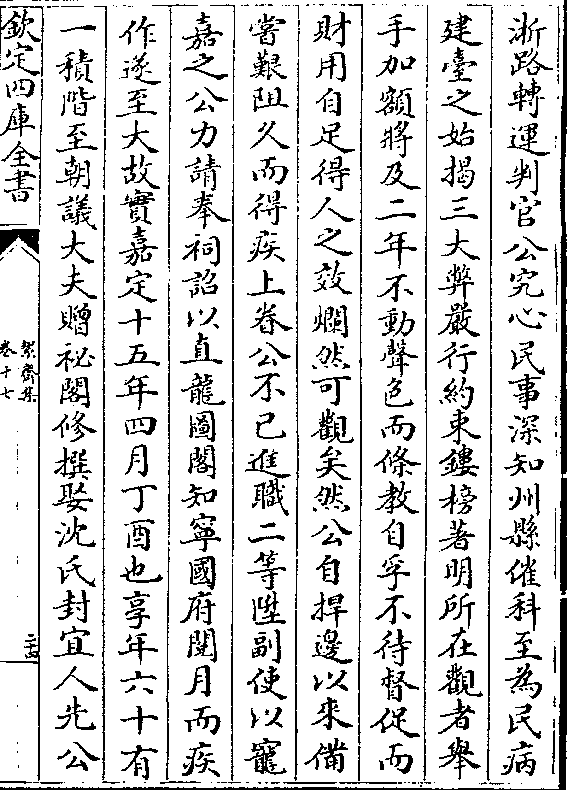 淅路轉運判官公究心民事深知州縣催科至為民病
建臺之始揭三大弊嚴行約束鏤榜著明所在觀者舉
手加額將及二年不動聲色而條教自孚不待督促而
財用自足得人之效爛然可觀矣然公自捍邊以來備
嘗艱阻久而得疾上眷公不已進職二等陞副使以寵
嘉之公力請奉祠詔以直龍圖閣知寧國府閱月而疾
作遂至大故實嘉定十五年四月丁酉也享年六十有
一積階至朝議大夫贈祕閣修撰娶沈氏封宜人先公
欽定四庫全書
絜齋集
卷十七
二十四